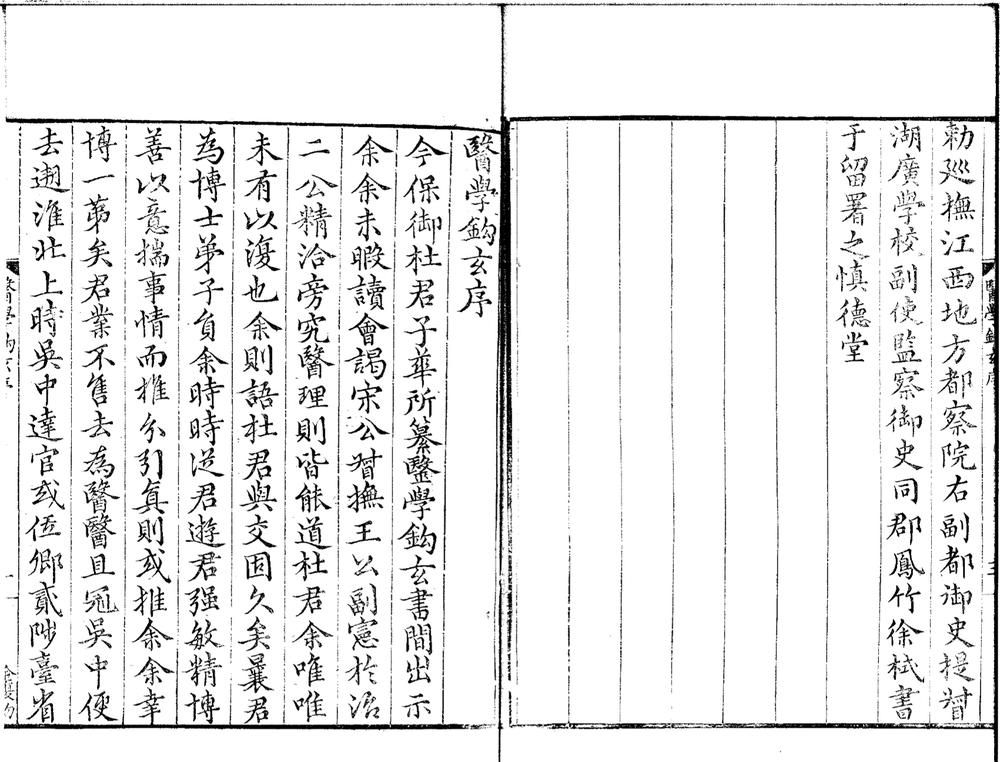 勅巡撫江西地方都察院右副都御史提督
湖廣學校副使監察御史同郡鳳竹徐栻書
于留署之慎德堂
醫學鈎玄序
醫學鈎玄序
今保御杜君子華所纂醫學鈎玄書間出示
余余未暇讀會謁宋公督撫王公副憲於治
二公精洽旁究醫理則皆能道杜君余唯唯
未有以復也余則語杜君與交固久矣曩君
為博士弟子負余時時從君遊君强敏精博
善以意揣事情而推分引眞則或推余余幸
博一第矣君業不售去為醫醫且冠吳中便
去遡淮北上時吳中達官或伍卿貳陟臺省
醫學鈎玄序